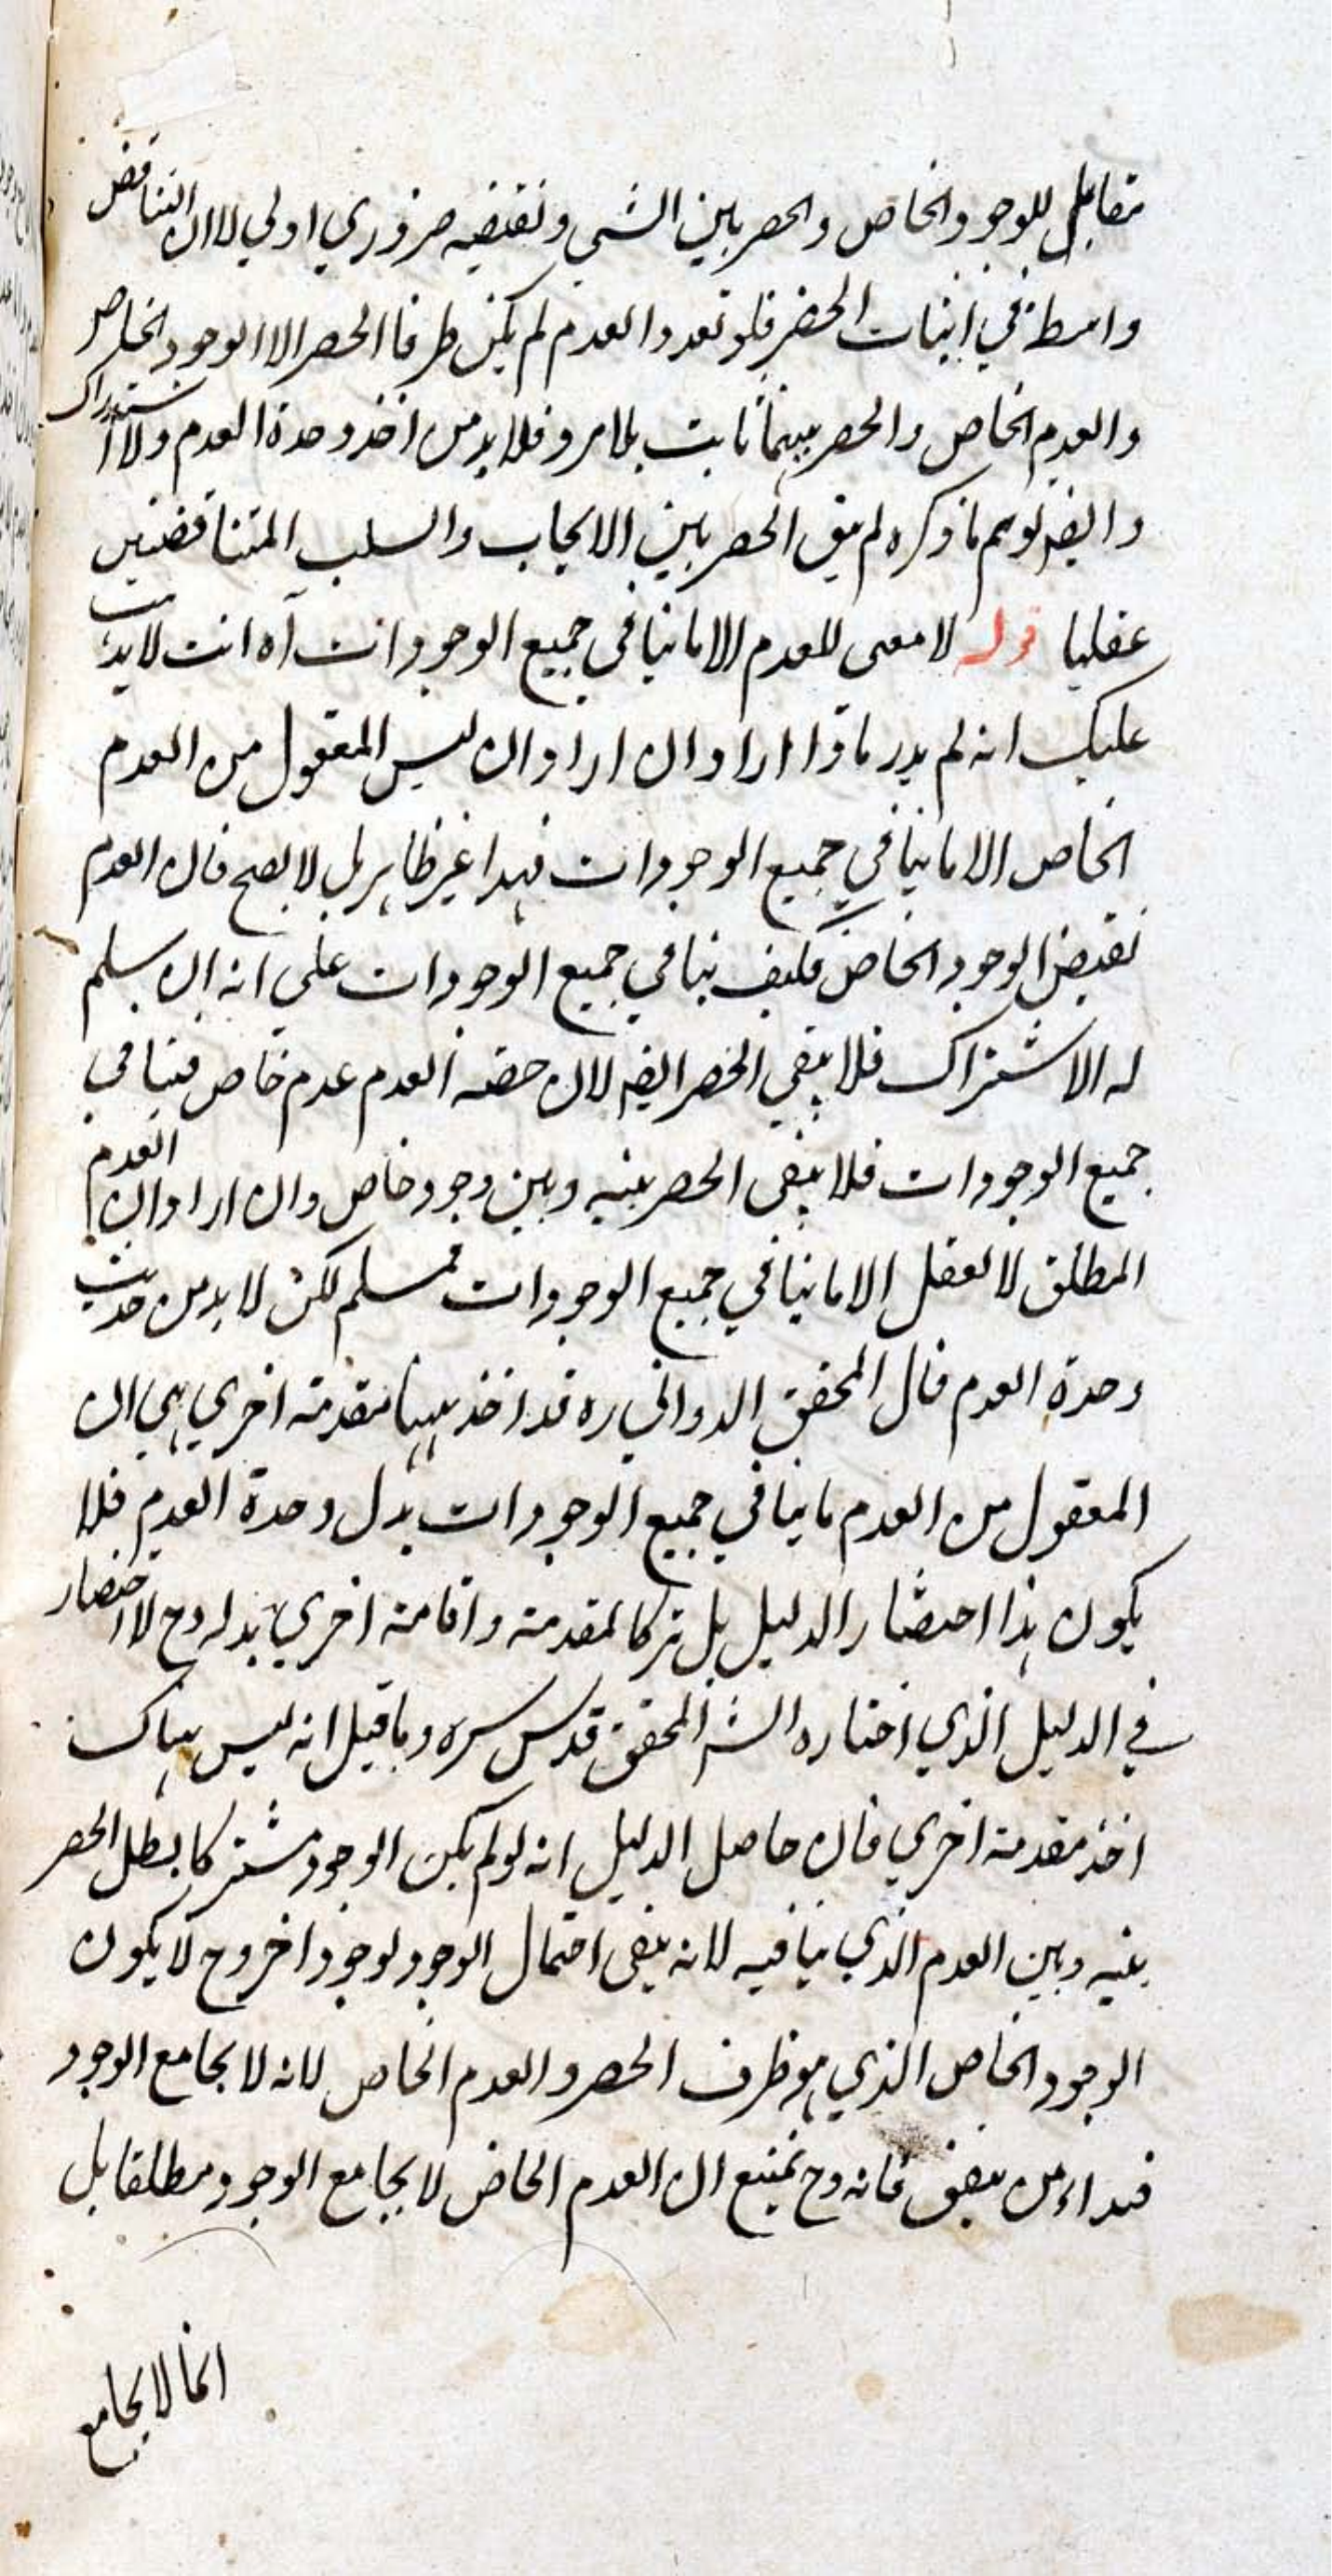 مقابل للوجود الخاص والحصر بين الشي ونقيضه ضروري اولي لا ان التناقض
واسطة في اثبات الحصر فلو تعدد العدم لم يكن طرفا الحصر الا الوجود الخاص
والعدم الخاص والحصر بينهما ثابت بلا مرو فلا بد من اخذ وحدة العدم ولا استدراك
وايضا لو تم ما ذكره لم يبق الحصر بين الايجاب والسلب المتناقضين
عقليا قوله لا معنى للعدم الا ما ينافي جميع الوجودات آه انت لا يذهب
عليك انه لم يدر ماذا اراد ان اراد ان ليس المعقول من العدم
الخاص الا ما ينافي جميع الوجودات فهذا غير ظاهر بل لا يصح فان العدم
نقيض الوجود الخاص فكيف ينافي جميع الوجودات على انه ان سلم
له الاشتراك فلا يبقى الحصر ايضا لان حصة العدم عدم خاص فينافي
جميع الوجودات فلا يبقى الحصر بينه وبين وجود خاص وان اراد ان العدم
المطلق لا يعقل الا ما ينافي جميع الوجودات فمسلم لكن لا بد من حديث
وحدة العدم قال المحقق الدواني ره قد اخذ ههنا مقدمة اخري هي ان
المعقول من العدم ما ينافي جميع الوجودات بدل وحدة العدم فلا
يكون هذا اختصار الدليل بل تركا لمقدمة واقامة اخري بدله وح لا اختصار
في الدليل الذي اختاره الش المحقق قدس سره وما قيل انه ليس هناك
اخذ مقدمة اخري فان حاصل الدليل انه لو لم يكن الوجود مشتركا لبطل الحصر
بينه وبين العدم الذي ينافيه لانه يبقى احتمال الوجود لوجود اخر وح لا يكون
الوجود الخاص الذي هو طرف الحصر والعدم الخاص لانه لا يجامع الوجود
فهداء من يفق فانه وح يمنع ان العدم الخاص لا يجامع الوجود مطلقا بل
انما لا يجامع